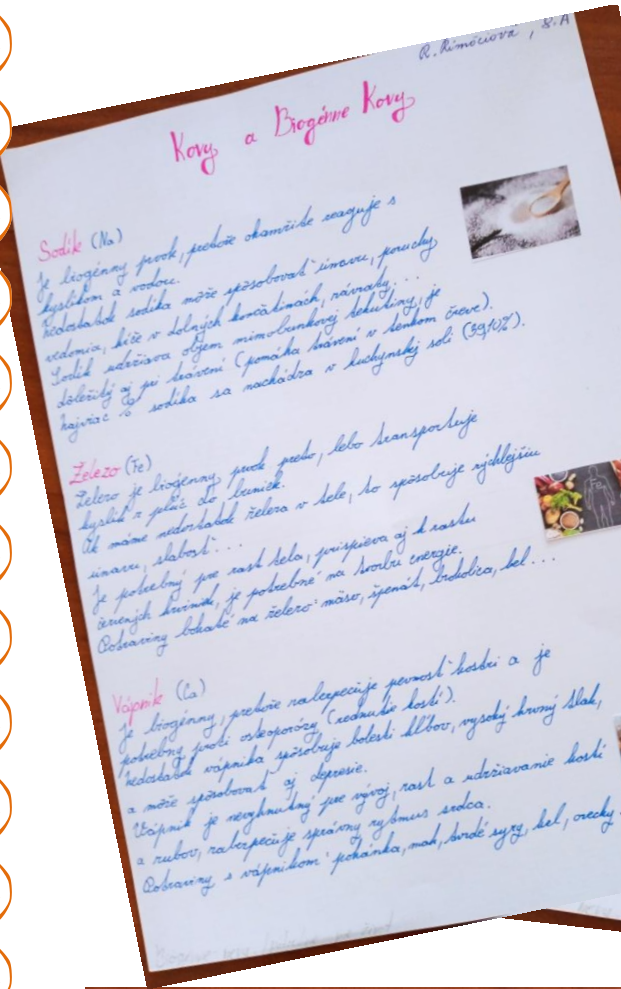 R. Rimóciová, 8.A
Kovy a Biogénne Kovy
Sodík (Na)
Je biogénny prvok, pretože okamžite reaguje s
kyslíkom a vodou.
Nedostatok sodíka môže spôsobovať únavu, poruchy
vedomia, kŕče v dolných končatinách, návraty...
Sodík udržiava objem mimobunkovej tekutiny, je
dôležitý aj pri trávení (pomáha trávení v tenkom čreve).
Najviac % sodíka sa nachádza v kuchynskej soli (39,10%).
Železo (Fe)
Železo je biogénny prvok preto, lebo transportuje
kyslík z pľúc do buniek.
Ak máme nedostatok železa v tele, to spôsobuje rýchlejšiu
únavu, slabosť...
Je potrebný pre rast tela, prispieva aj k rastu
červených krviniek, je potrebné na tvorbu energie.
Potraviny bohaté na železo: mäso, špenát, brokolica, kel...
Vápnik (Ca)
Je biogénny, pretože zabezpečuje pevnosť kostri a je
potrebný proti osteoporózy (rednutie kostí).
Nedostatok vápnika spôsobuje bolesti kĺbov, vysoký krvný tlak,
a môže spôsobovať aj depresie.
Vápnik je nevyhnutný pre vývoj, rast a udržiavanie kostí
a zubov, zabezpečuje správny rytmus srdca.
Potraviny s vápnikom: pohánka, mak, tvrdé syry, kel, orechy